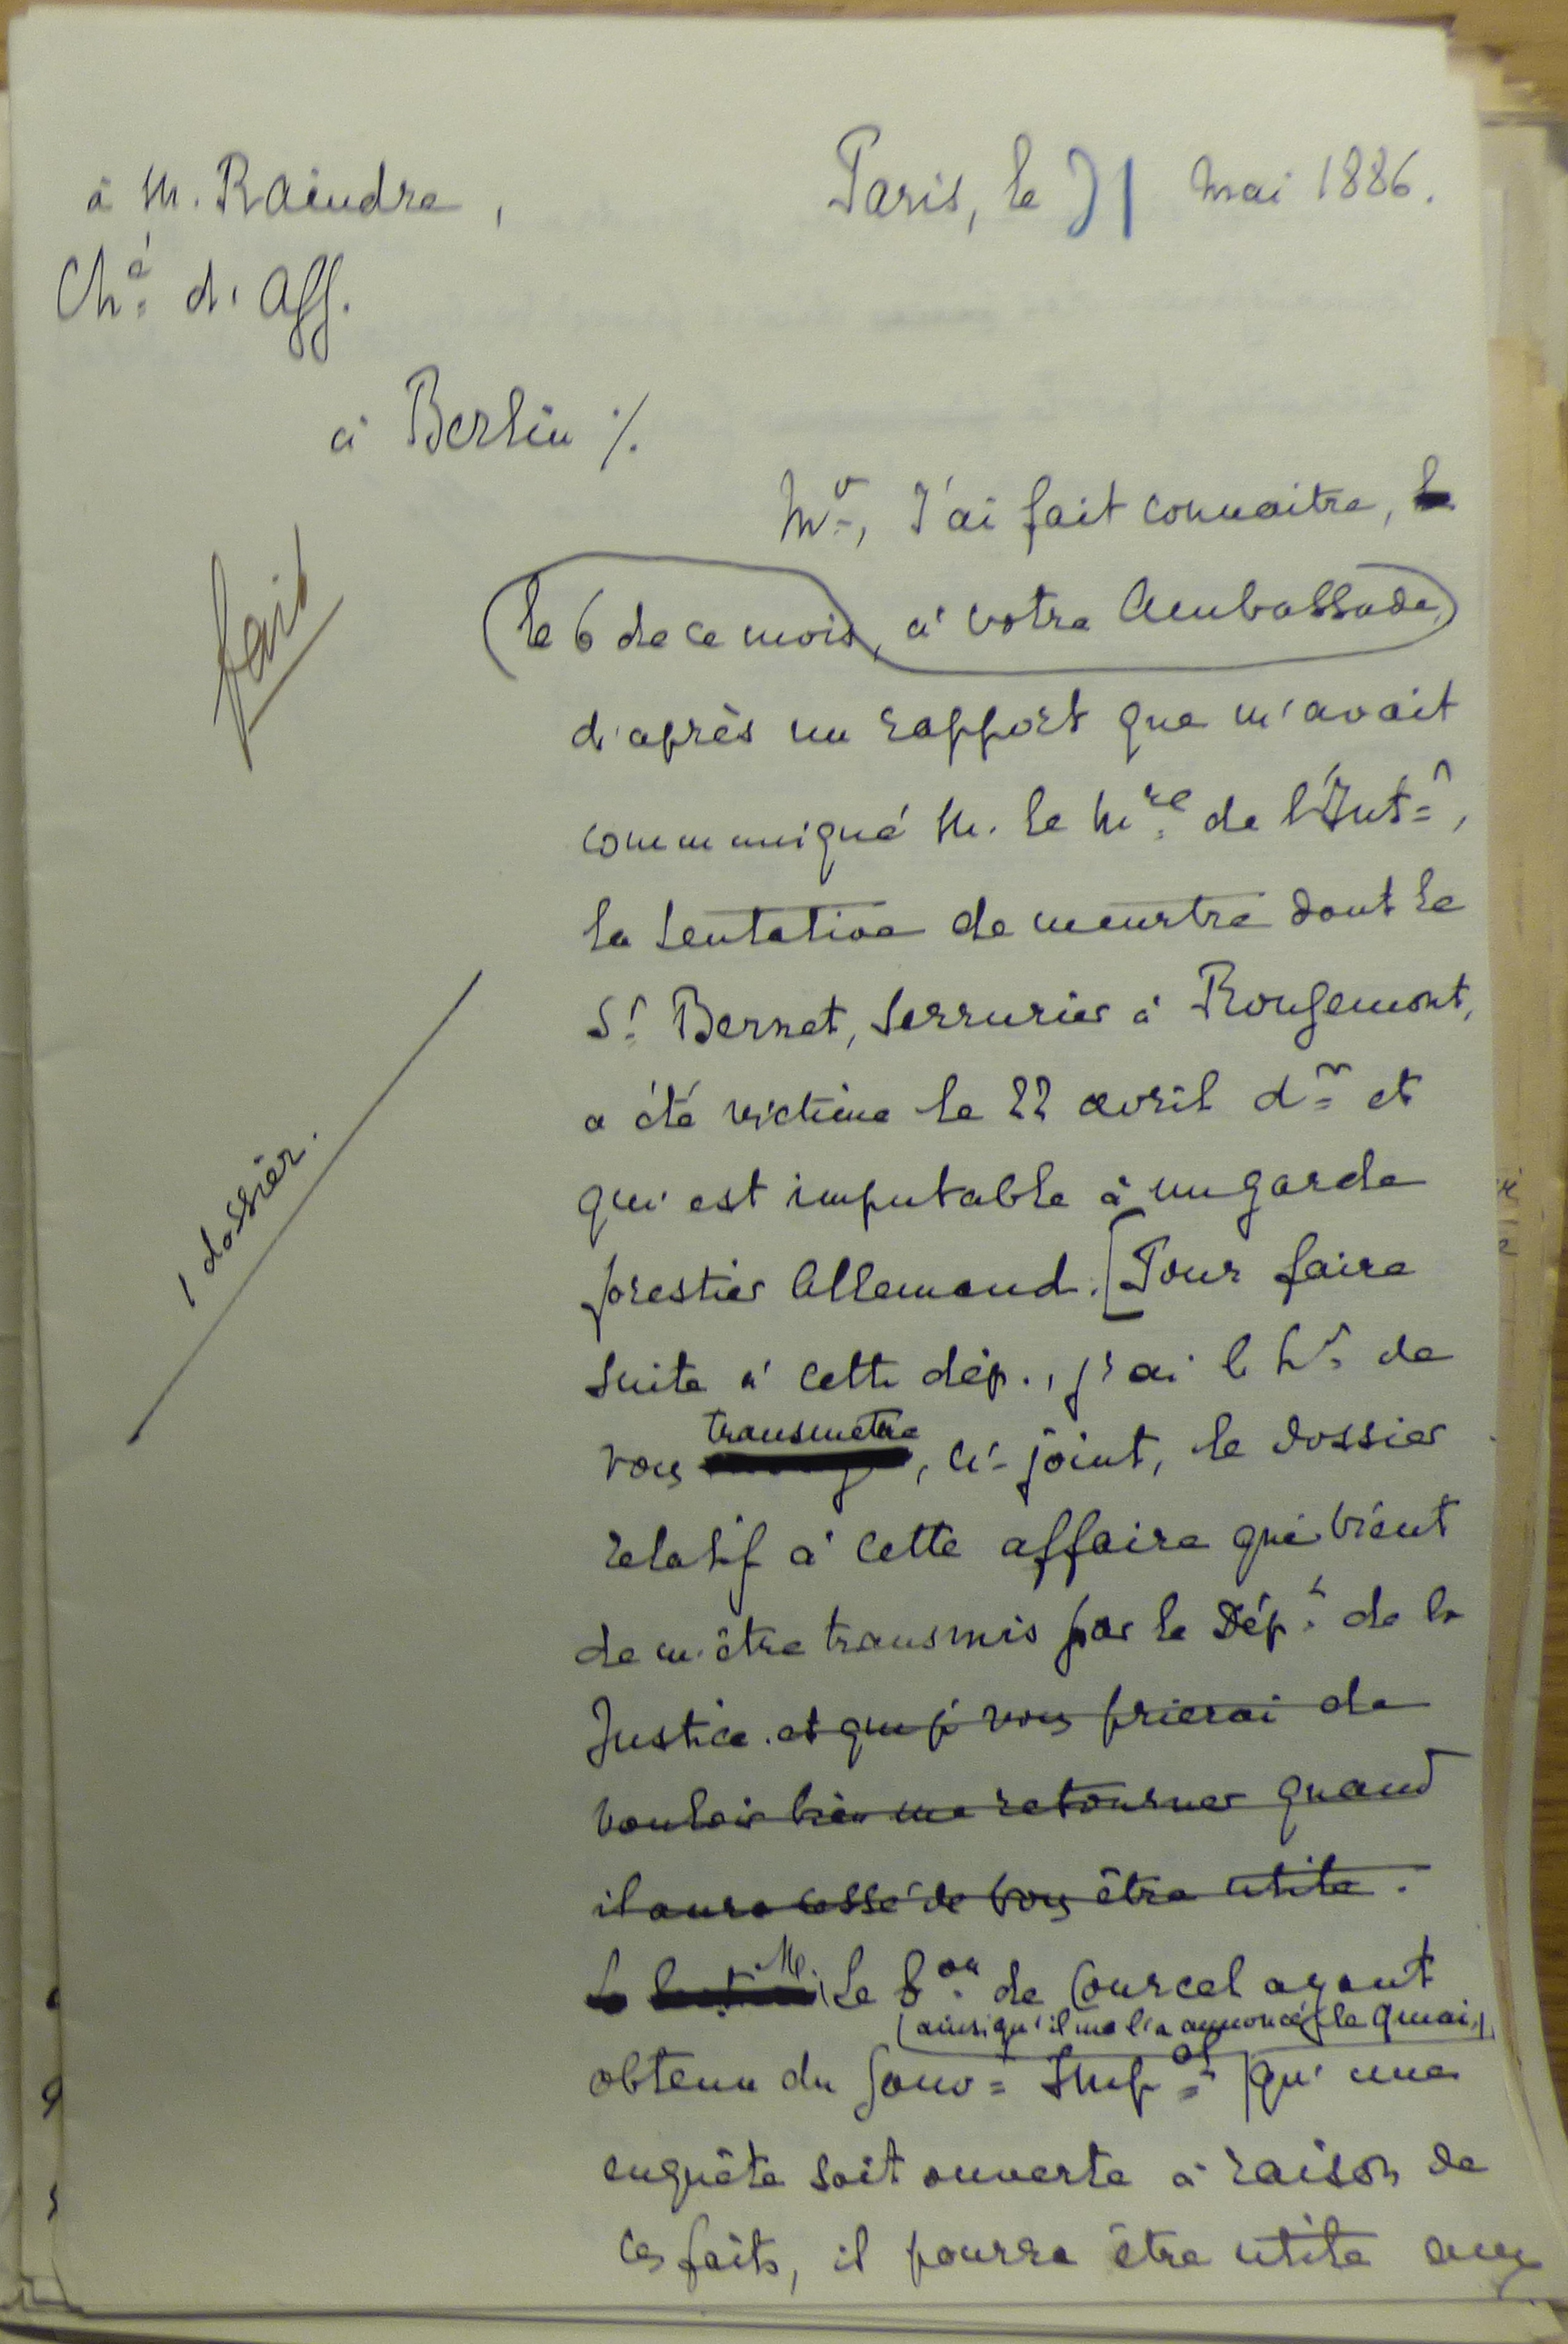 à M. Raindre,
Paris, le 31 mai 1886.
Ché d'aff.
à Berlin /.
Mr, J'ai fait connaitre, le
le 6 de ce mois, à votre Ambassade,
fait
d'après un rapport que m'avait
communiqué M. le Mre de l'Intr,
la tentative de meurtre dont le
Sr Bernet, serrurier à Rougemont,
a été victime le 22 avril dr et
qui est imputable à un garde
forestier Allemand. [Pour faire
1 dossier.
suite à cette dép., j'ai l'hr de
transmettre
vous , ci-joint, le dossier
relatif à cette affaire qui vient
de m'être transmis par le Dépt de la
Justice. et que je vous prierai de
vouloir bien me retourner quand
il aura cessé de vous être utile.
M. le Bon de Courcel ayant
(ainsi qu'il me l'a annoncé le 9 mai,)
obtenu du Gouvt Impal qu'une
enquête soit ouverte à raison de
ces faits, il pourra être utile aux